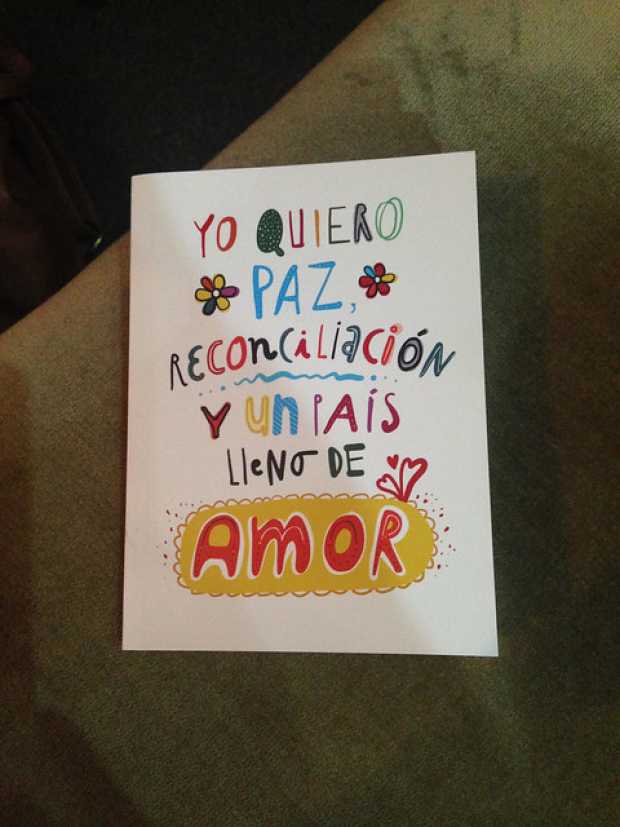 YO QUIERO
PAZ,
RECONCILIACIÓN
Y UN PAÍS
LLENO DE
AMOR